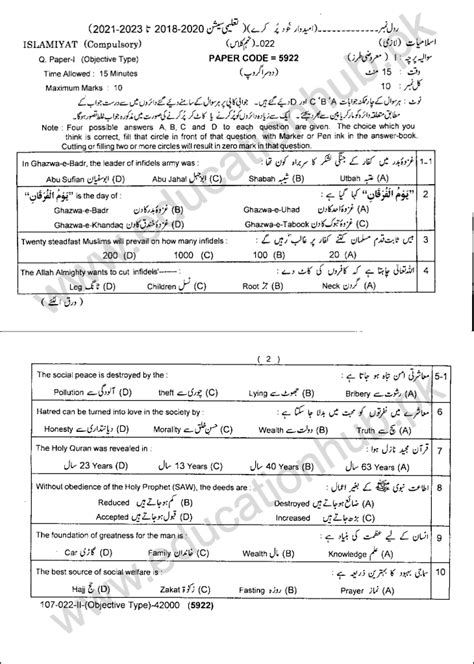 رول نمبر (امیدوار خود پُر کرے) (تعلیمی سیشن 2018-2020 تا 2021-2023)
ISLAMIYAT (Compulsory) 022- اسلامیات (لازمی)
Q. Paper-I (Objective Type) PAPER CODE = 5922 سوالیہ پرچہ : I (معروضی طرز)
Time Allowed : 15 Minutes (دوسرا گروپ) وقت : 15 منٹ
Maximum Marks : 10 کل نمبر : 10
Note : Four possible answers A, B, C and D to each question are given. The choice which you
think is correct, fill that circle in front of that question, with Marker or Pen ink in the answer-book.
Cutting or filling two or more circles will result in zero mark in that question.
In Ghazwa-e-Badr, the leader of infidels army was : غزوہ بدر میں کفار کے جنگی لشکر کا سربراہ کون تھا : 1-1
Abu Sufian ابوسفیان (D) Abu Jahal ابوجہل (C) Shabah شیبہ (B) Utbah عتبہ (A)
"یَوْمُ الْفُرْقَان" is the day of : "یَوْمُ الْفُرْقَان" کہا گیا ہے : 2
Ghazwa-e-Badr غزوہ بدر کا دن (B) Ghazwa-e-Uhad غزوہ احد کا دن (A)
Ghazwa-e-Khandaq غزوہ خندق کا دن (D) Ghazwa-e-Tabook غزوہ تبوک کا دن (C)
Twenty steadfast Muslims will prevail on how many infidels : بیس ثابت قدم مسلمان کتنے کفار پر غالب آئیں گے : 3
200 (D) 1000 (C) 100 (B) 20 (A)
The Allah Almighty wants to cut infidels'------- : اللہ تعالیٰ چاہتا ہے کہ کافروں کی کاٹ دے : 4
Leg ٹانگ (D) Children نسل (C) Root جڑ (B) Neck گردن (A)
(ورق الٹئے)
( 2 )
The social peace is destroyed by the : معاشرتی امن تباہ ہو جاتا ہے : 5-1
Pollution آلودگی سے (D) theft چوری سے (C) Lying جھوٹ سے (B) Bribery رشوت سے (A)
Hatred can be turned into love in the society by : معاشرے میں نفرتوں کو محبت میں بدلا جا سکتا ہے : 6
Honesty دیانتداری سے (D) Morality حسن خلق سے (C) Wealth دولت سے (B) Truth سچ سے (A)
The Holy Quran was revealed in : قرآن مجید نازل ہوا : 7
23 Years سال (D) 13 Years سال (C) 40 Years سال (B) 63 Years سال (A)
Without obedience of the Holy Prophet (SAW), the deeds are : اطاعت نبوی ﷺ کے بغیر اعمال : 8
Reduced کم ہو جاتے ہیں (B) Destroyed ضائع ہو جاتے ہیں (A)
Accepted قبول ہو جاتے ہیں (D) Increased بڑھ جاتے ہیں (C)
The foundation of greatness for the man is : انسان کے لیے عظمت کی بنیاد ہے : 9
Car گاڑی (D) Family خاندان (C) Wealth مال (B) Knowledge علم (A)
The best source of social welfare is : سماجی بہبود کا بہترین ذریعہ ہے : 10
Hajj حج (D) Zakat زکوٰۃ (C) Fasting روزہ (B) Prayer نماز (A)
107-022-II-(Objective Type)-42000 (5922)
www.educationhub.pk